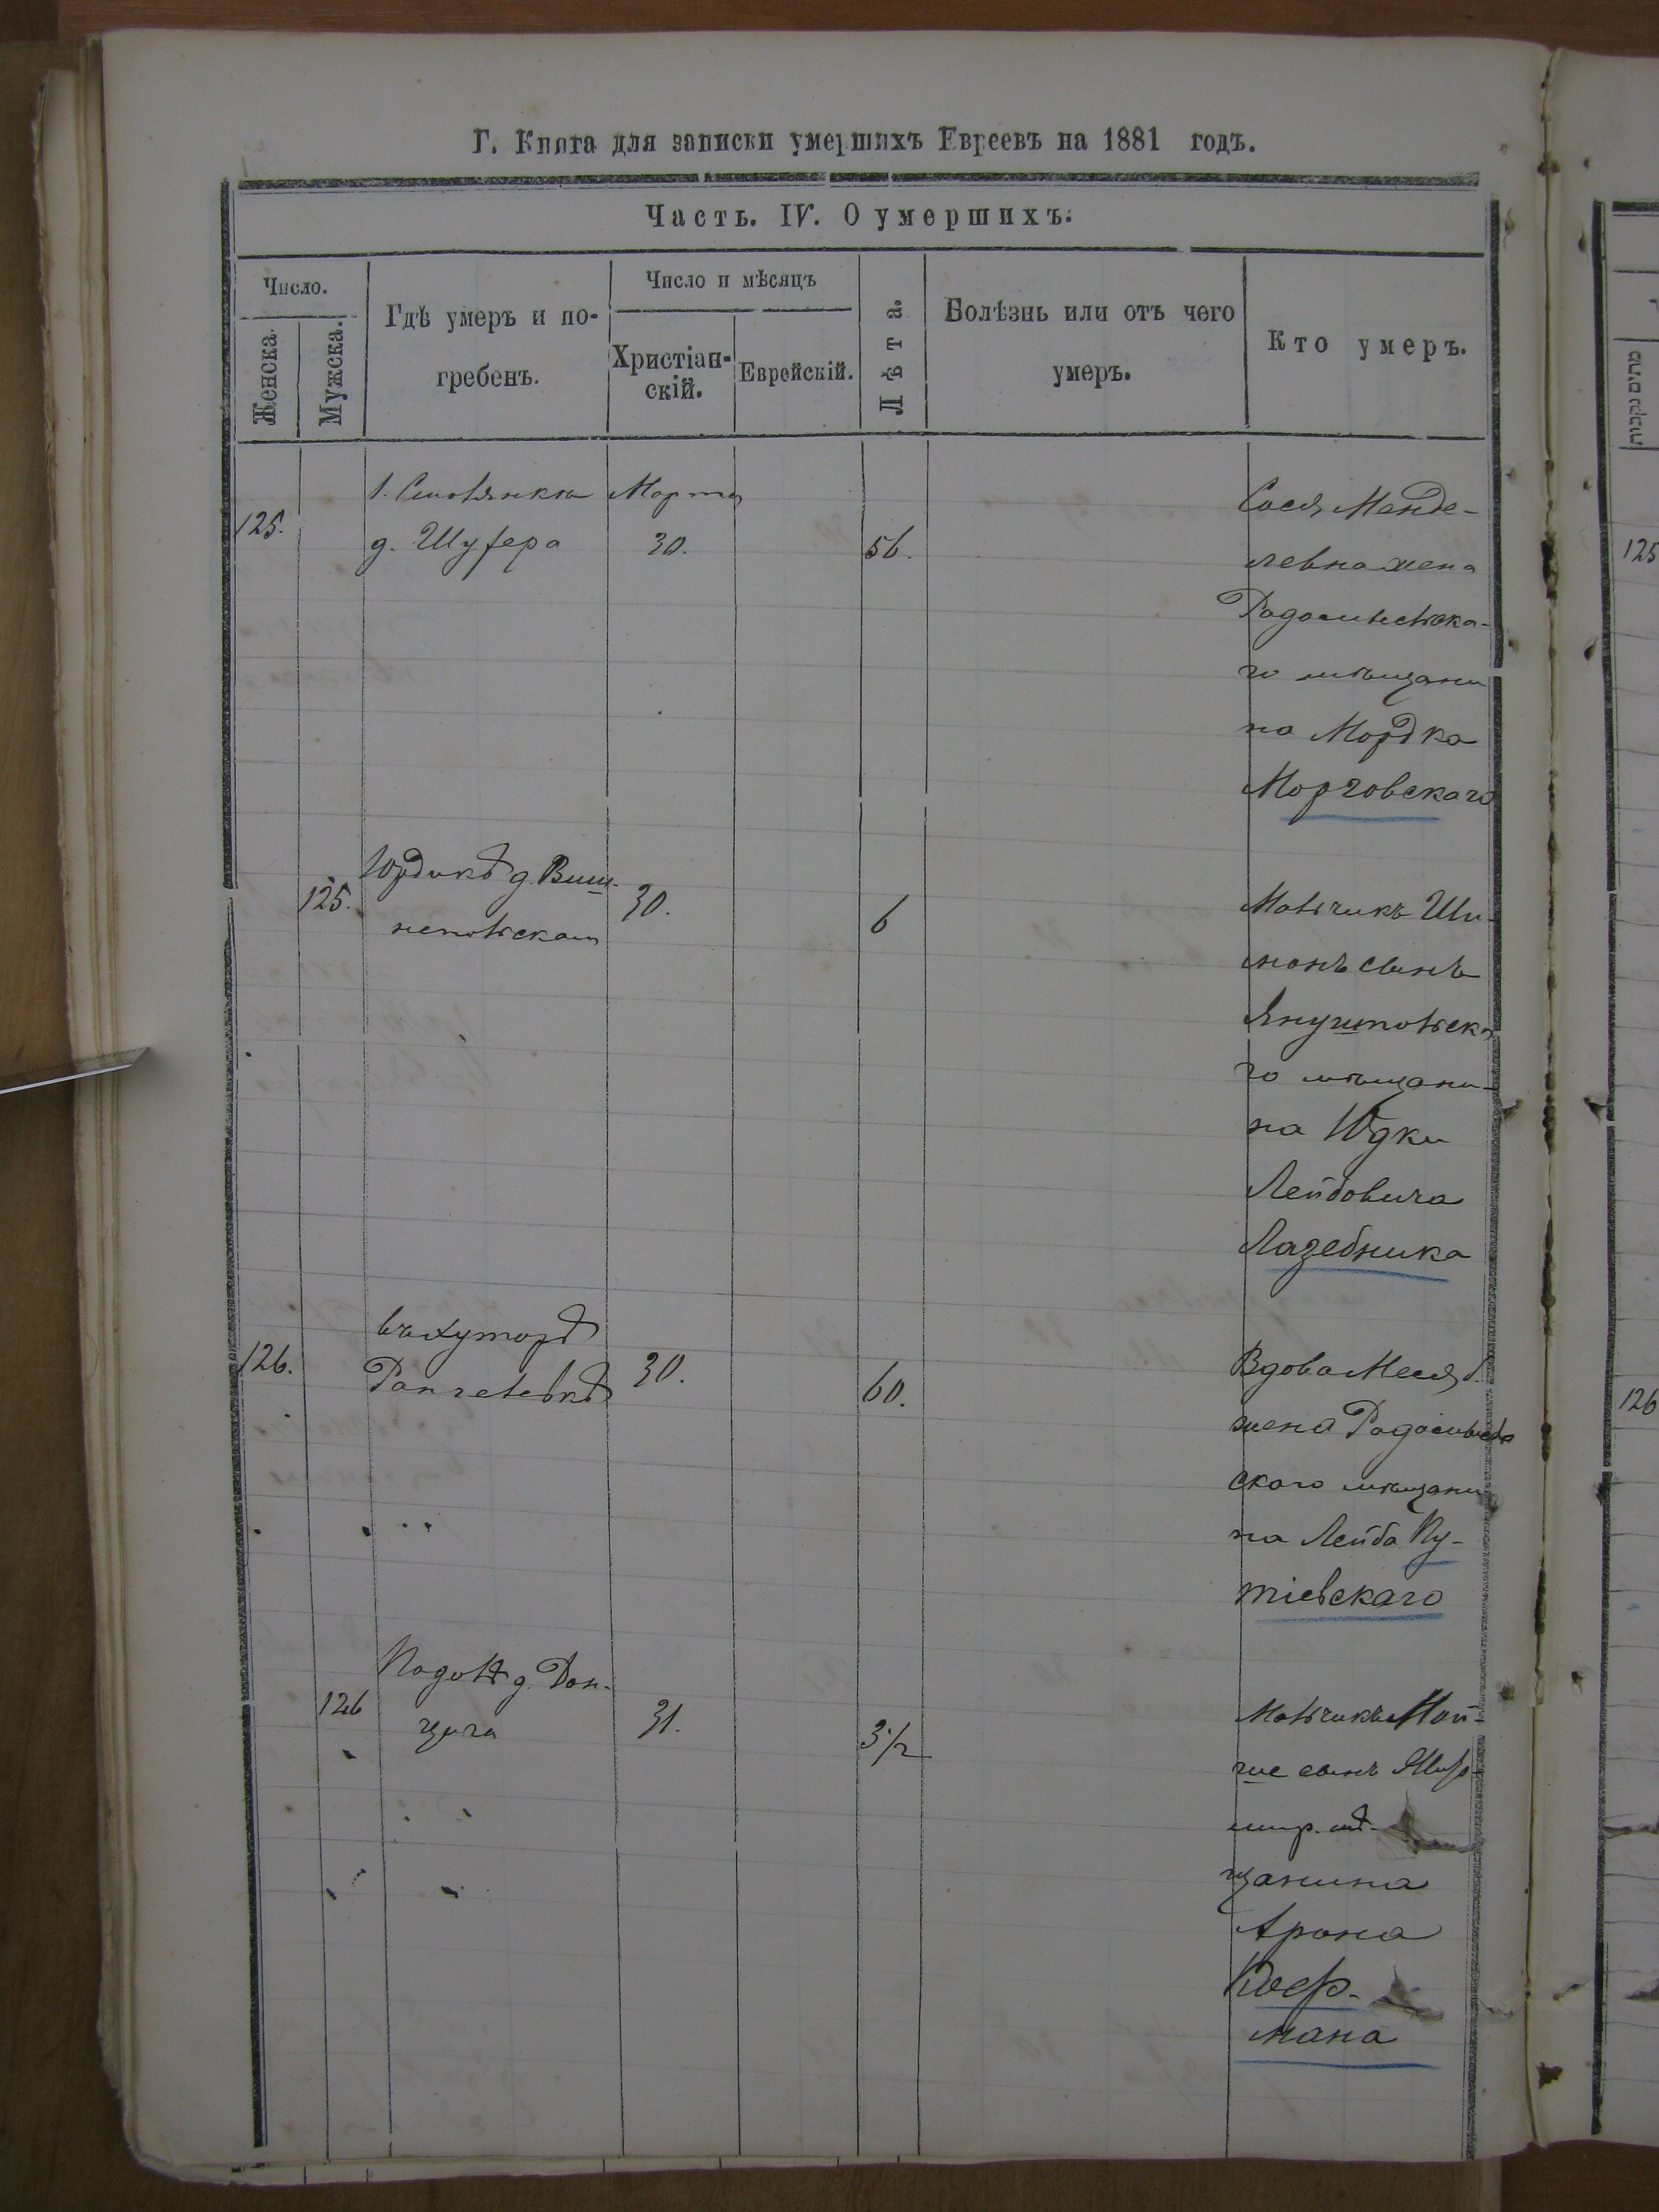 Г. Книга для записки умершихъ Евреевъ на 1881 годъ.
Часть. IV. О умершихъ.
Число.
Женска.
Мужска.
Гдѣ умеръ и по-
гребенъ.
Число и мѣсяцъ
Христіан-
скій.
Еврейскій.
Лѣта.
Болѣзнь или отъ чего
умеръ.
Кто умеръ.
125.
д. Шуфера
Марта
30.
56.
Сося Менде-
левна жена
Радомысльска-
го мѣщани
на Мордка
Морговскаго
125.
Юрдикѣ д. Виш-
непольскаго
30.
6
Мальчикъ Ши-
монъ сынъ
Янушпольска
го мѣщани-
на Юдки
Лейбовича
Лазебника
126.
въ хуторѣ
30.
60.
Вдова Меся
жена Радомысль
скаго мѣщани
на Лейба Пу-
тіевскаго
126
Подолѣ д. Дан-
цига
31.
3 1/2
Мальчикъ Мой-
ше сынъ
мѣ-
щанина
Арона
мана
125
126